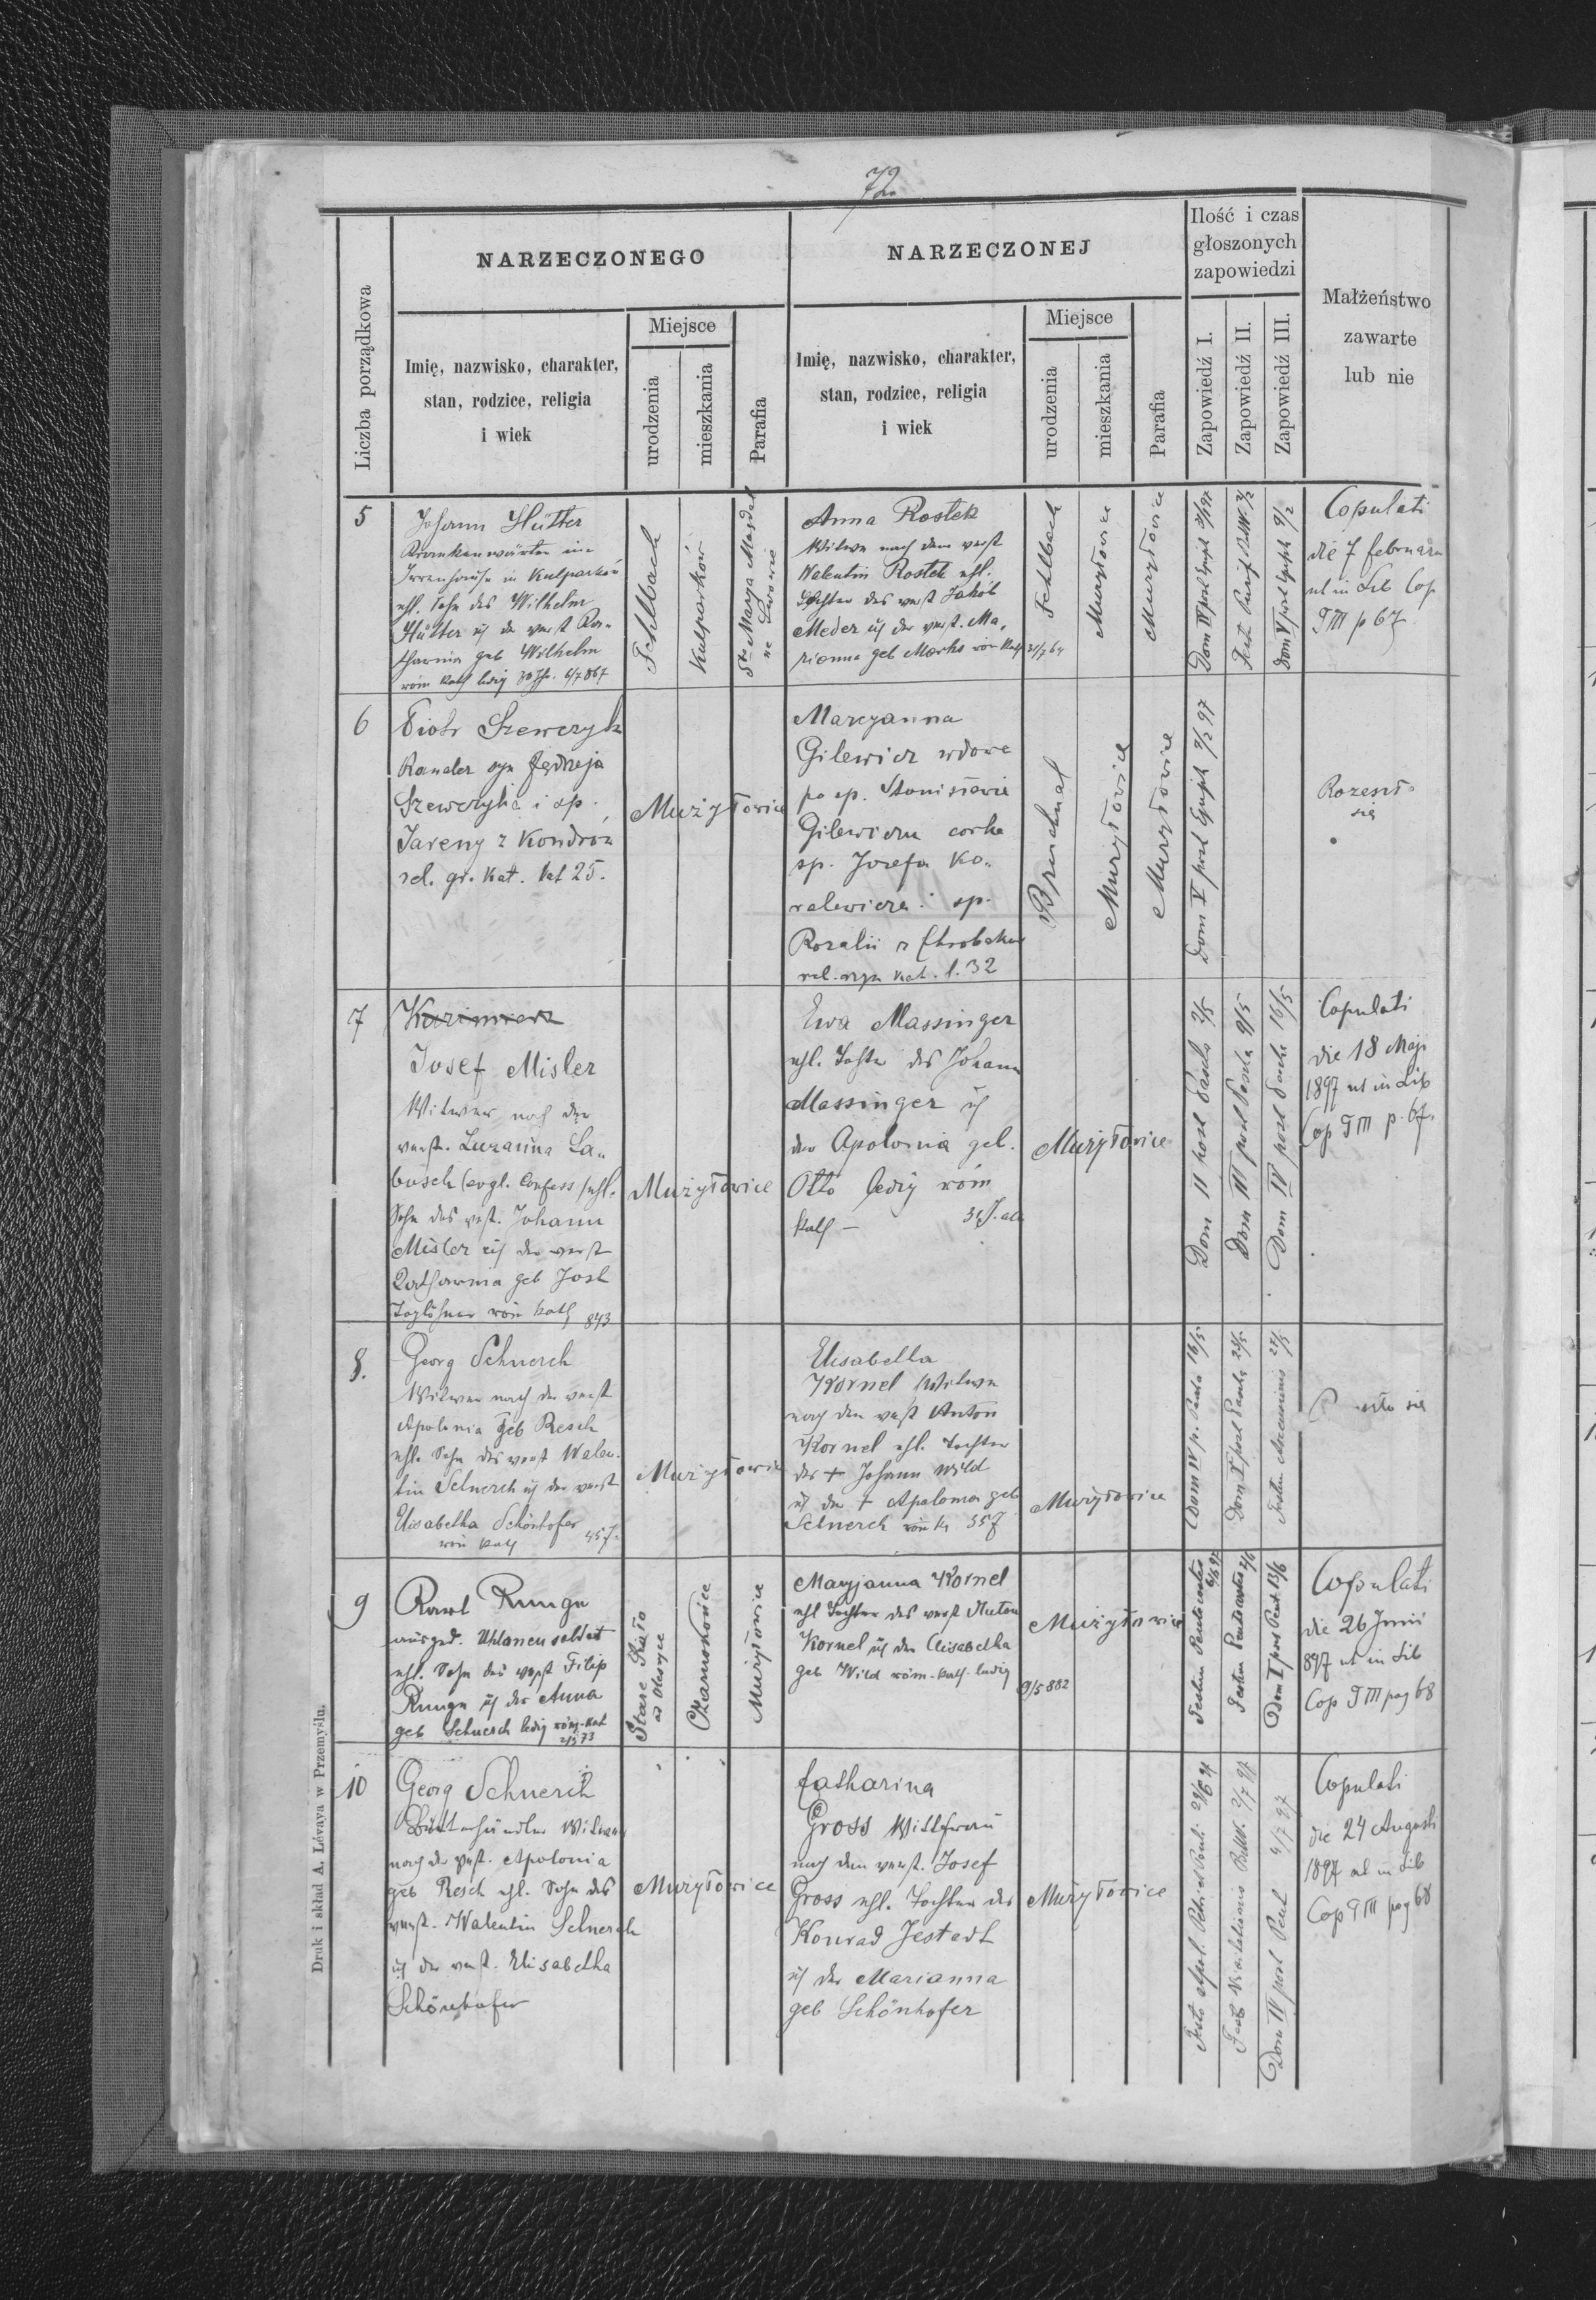 72
NARZECZONEGO
NARZECZONEJ
Ilość i czas
głoszonych
zapowiedzi
Liczba porządkowa
Imię, nazwisko, charakter,
stan, rodzice, religia
i wiek
Miejsce
urodzenia
mieszkania
Parafia
Imię, nazwisko, charakter,
stan, rodzice, religia
i wiek
Miejsce
urodzenia
mieszkania
Parafia
Zapowiedź I.
Zapowiedź II.
Zapowiedź III.
Małżeństwo
zawarte
lub nie
5
Johann Hütter
Krankenwärter im
Irrenhause in Kulparków
ehl. Sohn des Wilhelm
Hütter u der verst Ka-
tharina geb Wilhelm
röm kath ledig 30 J. 6/7 867
Fehlbach
Kulparków
Sta Marya Magdal
we Lwowie
Anna Rostek
Witwe nach dem verst
Valentin Rostek ehl.
Tochter des verst Jakob
Meder u der verst. Ma-
rianna geb Marks röm kath 31/7 64
Fehlbach
Mużyłowice
Mużyłowice
Dom IV post Epiph 31/1 97
Festi Purif BMV. 2/2
Dom V post Epiph 7/2
Copulati
die 7 februarii
ut in Lib Cop
T III p 67
6
Piotr Szewczyk
syn Jędrzeja
Szewczyka i sp.
z Kondrów
rel. gr. kat. lat 25.
Mużyłowice
Maryanna
Gilewicz wdowa
po sp. Stanisławie
Gilewiczu corka
sp. Jozefa Ko-
walewicza i sp.
Rozalii z
rel. rzym kat. l. 32
Bruchnal
Mużyłowice
Mużyłowice
Dom V post Epiph 7/2 97
Rozeszło
się
7
Kazimierz
Josef Misler
Witwer nach der
verst. Zuzanna La-
busch (evgl. Confess) ehl.
Sohn des verst. Johann
Misler u der verst
Katharina geb Jost
Taglöhner röm kath 843
Mużyłowice
Ewa Massinger
ehl. Tochter des Johann
Massinger u
der Apolonia geb.
Otto ledig röm
kath — 34 J. alt
Mużyłowice
Dom II post Pascha 2/5
Dom III post Pascha 9/5
Dom IV post Pascha 16/5
Copulati
die 18 Maji
1897 ut in Lib
Cop T III p. 67.
8.
Georg Schnerch
Witwer nach der verst
Apolonia geb Resch
ehl. Sohn des verst Valen-
tin Schnerch u der verst
Elisabetha Schönhofer
röm kath 45 J.
Mużyłowice
Elisabetha
Kornel Witwe
nach dem verst Anton
Kornel ehl. Tochter
des + Johann Wild
u der + Apolonia geb
Schnerch röm k 35 J
Mużyłowice
Dom IV p. Pascha 16/5
Dom V post Pascha 23/5
Festum Ascensionis 27/5
się
9
Karl Runge
ausged. Uhlanensoldat
ehl. Sohn des verst Filip
Runge u der Anna
geb Schnerch ledig röm-kat
73
Stare Sioło
ad Oleszyce
Czarnokońce
Mużyłowice
Maryjanna Kornel
ehl Tochter des verst Anton
Kornel u der Elisabetha
geb Wild röm-kath. ledig
/5 882
Mużyłowice
Festum Pentecostes 6/6 97
Festum Pentecostes 7/6
Dom I post Pent 13/6
Copulati
die 26 Junii
897 ut in Lib
Cop T III pag 68
10
Georg Schnerch
Witwer
nach der verst. Apolonia
geb Resch ehl. Sohn des
verst. Walentin Schnerch
u der verst. Elisabetha
Schönhofer
Mużyłowice
Catharina
Gross Wittfrau
nach dem verst. Josef
Gross ehl. Tochter des
Konrad Jestadt
u der Marianna
geb Schönhofer
Mużyłowice
Festo Apol. Petri et Pauli 29/6 97
Festo Visitationis BMV. 2/7 97
Dom IV post Pent 4/7 97
Copulati
die 24 Augusti
1897 ut in Lib
Cop T III pag 68
Druk i skład A. Lévaya w Przemyślu.